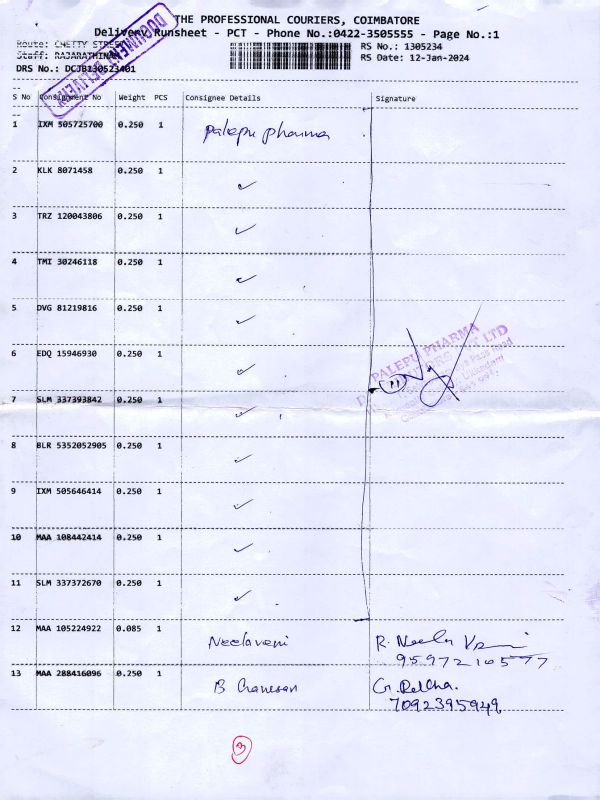 THE PROFESSIONAL COURIERS, COIMBATORE
Delivery Runsheet - PCT - Phone No.:0422-3505555 - Page No.:1
Route: CHETTY STREET
RS No.: 1305234
Staff: RAJARATHINAM
RS Date: 12-Jan-2024
DRS No.: DCJB130523401
DOCUMENT DELIVERY
S No Consignment No Weight PCS Consignee Details Signature
1 IXM 505725700 0.250 1 Palepu pharma
2 KLK 8071458 0.250 1 ✓
3 TRZ 120043806 0.250 1 ✓
4 TMI 30246118 0.250 1 ✓
5 DVG 81219816 0.250 1 ✓
6 EDQ 15946930 0.250 1 ✓
PALEPU PHARMA
LTD
11
7 SLM 337393842 0.250 1 ✓
8 BLR 5352052905 0.250 1 ✓
9 IXM 505646414 0.250 1 ✓
10 MAA 108442414 0.250 1 ✓
11 SLM 337372670 0.250 1 ✓
12 MAA 105224922 0.085 1 Neelaveni R. Neela Veni
9597210577
13 MAA 288416096 0.250 1 B Ganesan G. Radha.
7092395949
3